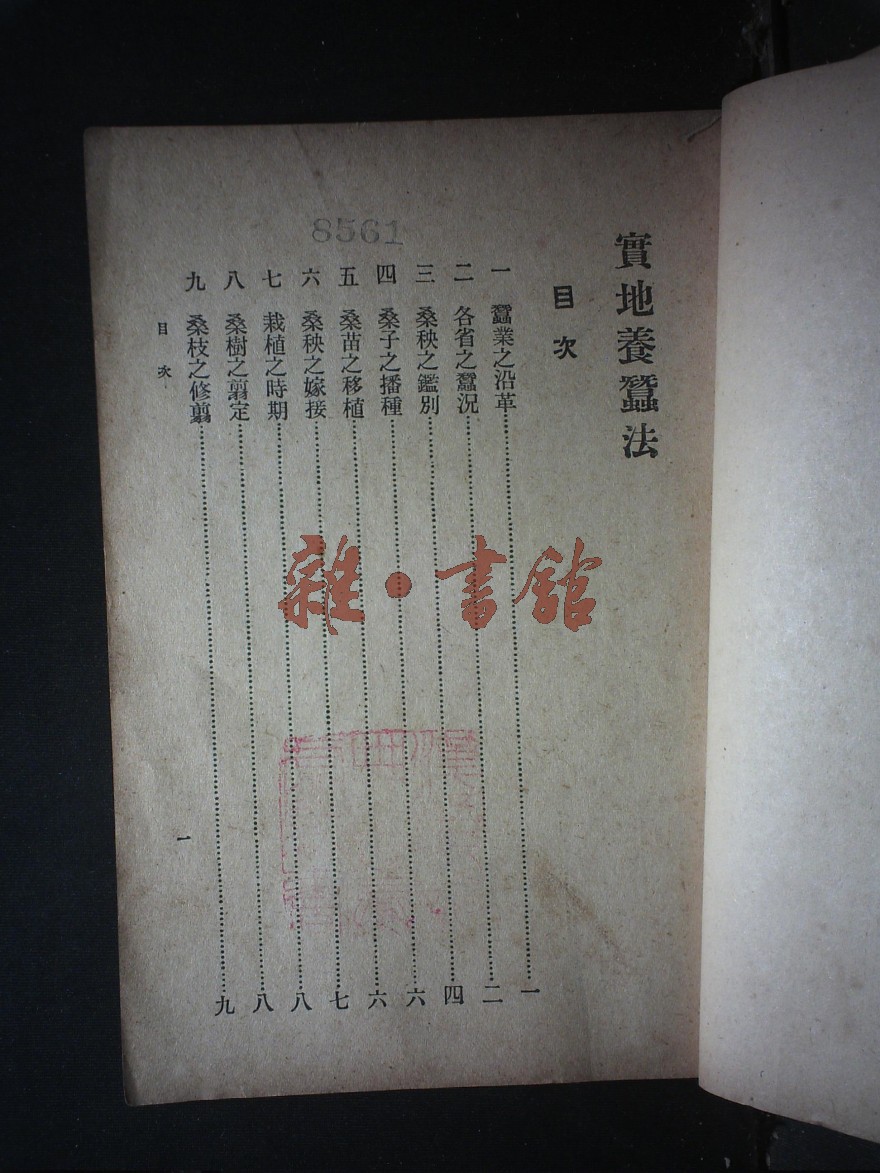 8561
實地養蠶法
目次
一 蠶業之沿革……一
二 各省之蠶況……二
三 桑秧之鑑別……四
四 桑子之播種……六
五 桑苗之移植……六
六 桑秧之嫁接……七
七 栽植之時期……八
八 桑樹之翦定……八
九 桑枝之修翦……九
目次
一
雜·書館